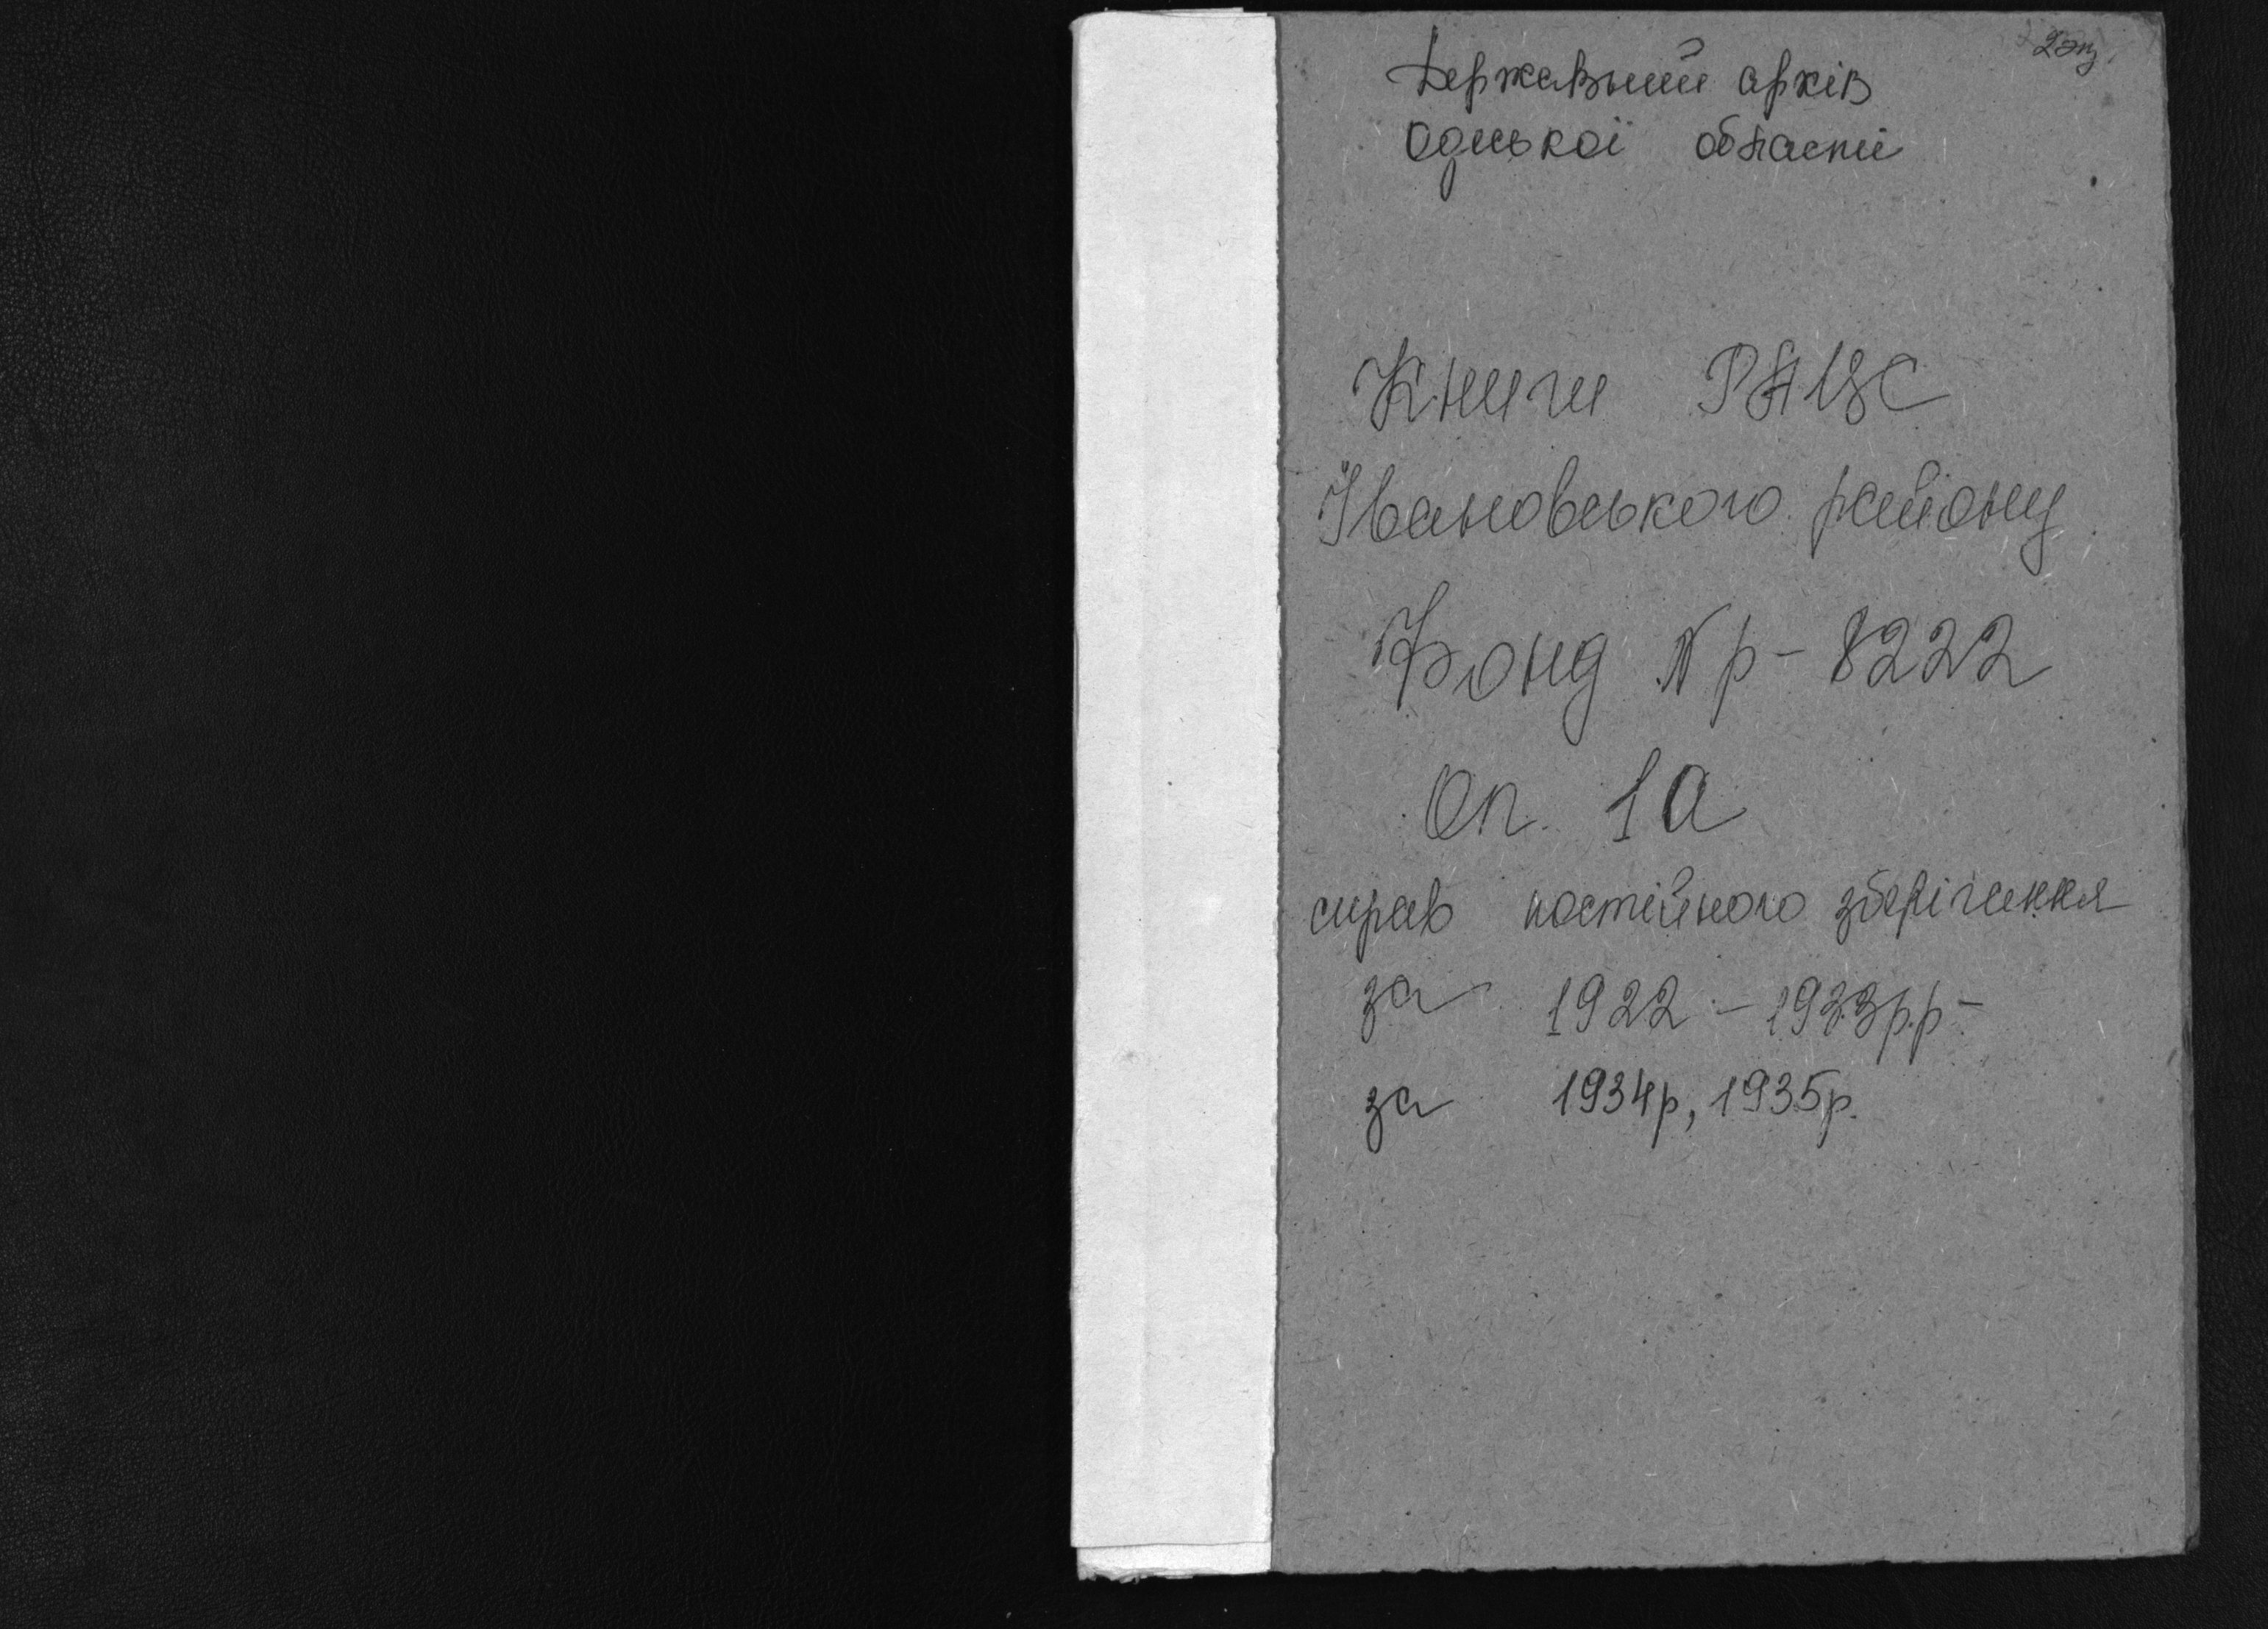 2 эк.
Державний архів
Одеської області
Книги РАЦС
Івановського району
Фонд № р-8222
Оп. 1а
справ постійного зберігення
за 1922 - 1933 р.р -
за 1934р, 1935р.